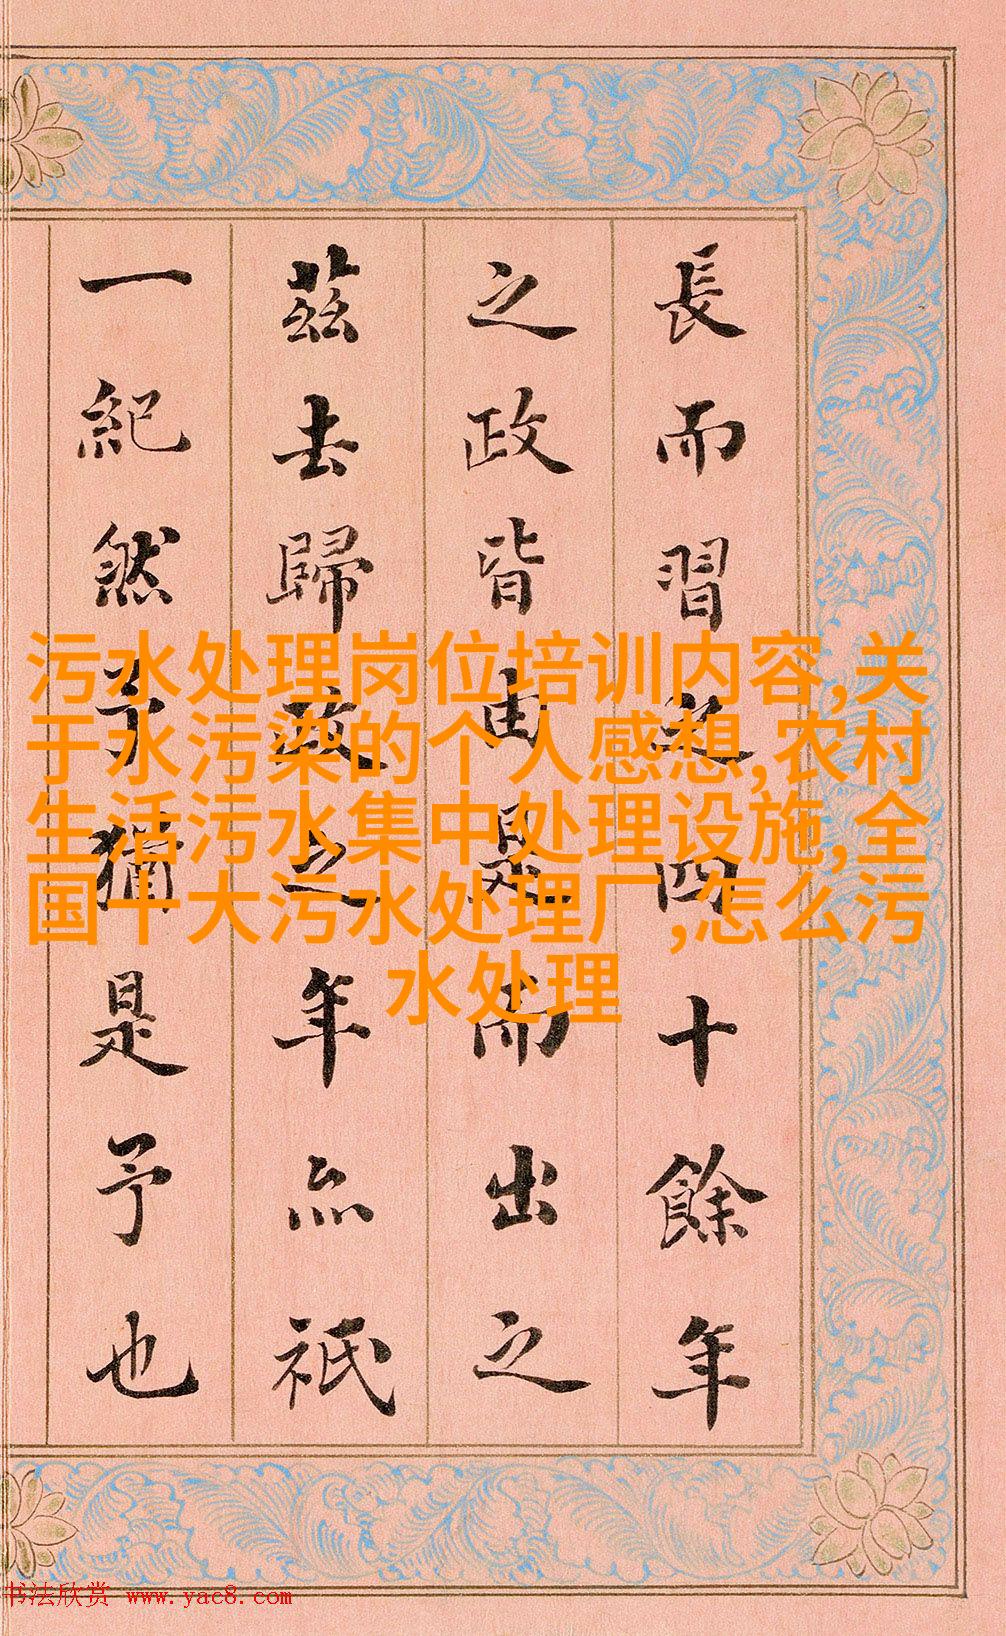 長而習之四十餘年
之政皆由是而出之
茲去歸政之年亦祇
一紀然予猶是予也
污水处理岗位培训内容,关
于水污染的个人感想,农村
生活污水集中处理设施,全
国十大污水处理厂,怎么污
水处理
书法欣赏 www.yac8.com